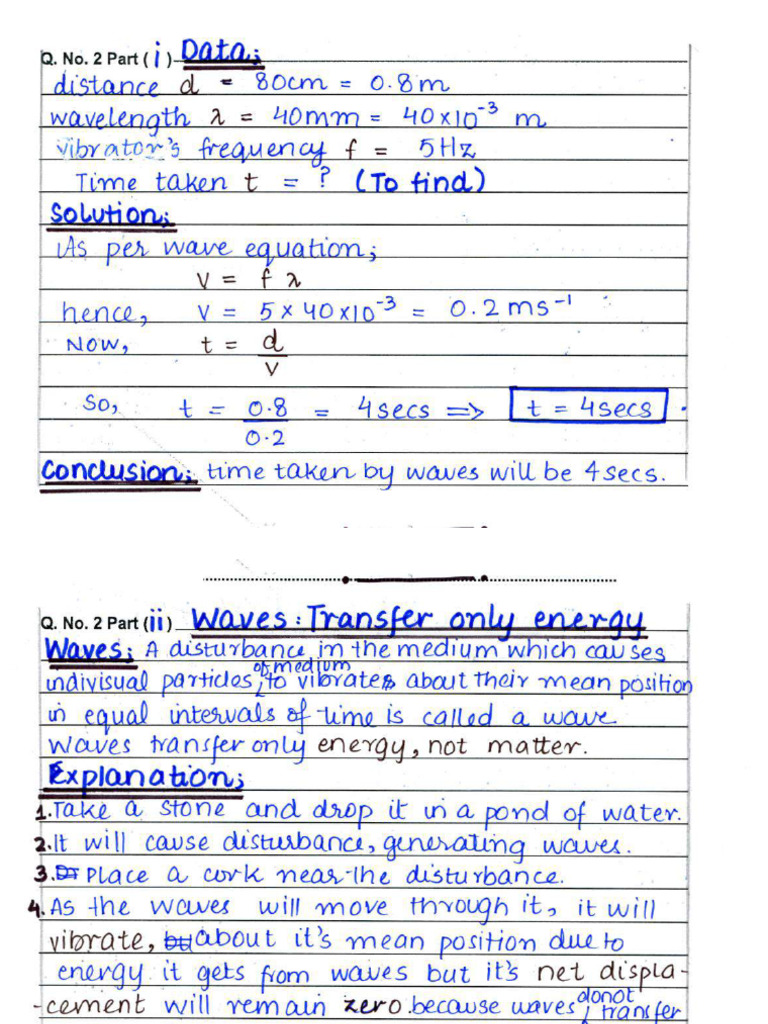 Q. No. 2 Part ( i ) Data;
distance d = 80cm = 0.8m
wavelength λ = 40mm = 40×10⁻³ m
vibrator's frequency f = 5Hz
Time taken t = ? (To find)
Solution;
As per wave equation;
v = f λ
hence, v = 5×40×10⁻³ = 0.2 ms⁻¹
Now, t = d/v
So, t = 0.8/0.2 = 4secs => t = 4secs.
Conclusion; time taken by waves will be 4secs.
Q. No. 2 Part (ii) Waves: Transfer only energy
Waves; A disturbance in the medium which causes
indivisual particles of medium to vibrates about their mean position
in equal intervals of time is called a wave
Waves transfer only energy, not matter.
Explanation;
1. Take a stone and drop it in a pond of water.
2. It will cause disturbance, generating waves.
3. Place a cork near the disturbance.
4. As the waves will move through it, it will
vibrate, about it's mean position due to
energy it gets from waves but it's net displa-
-cement will remain zero. because waves donot transfer